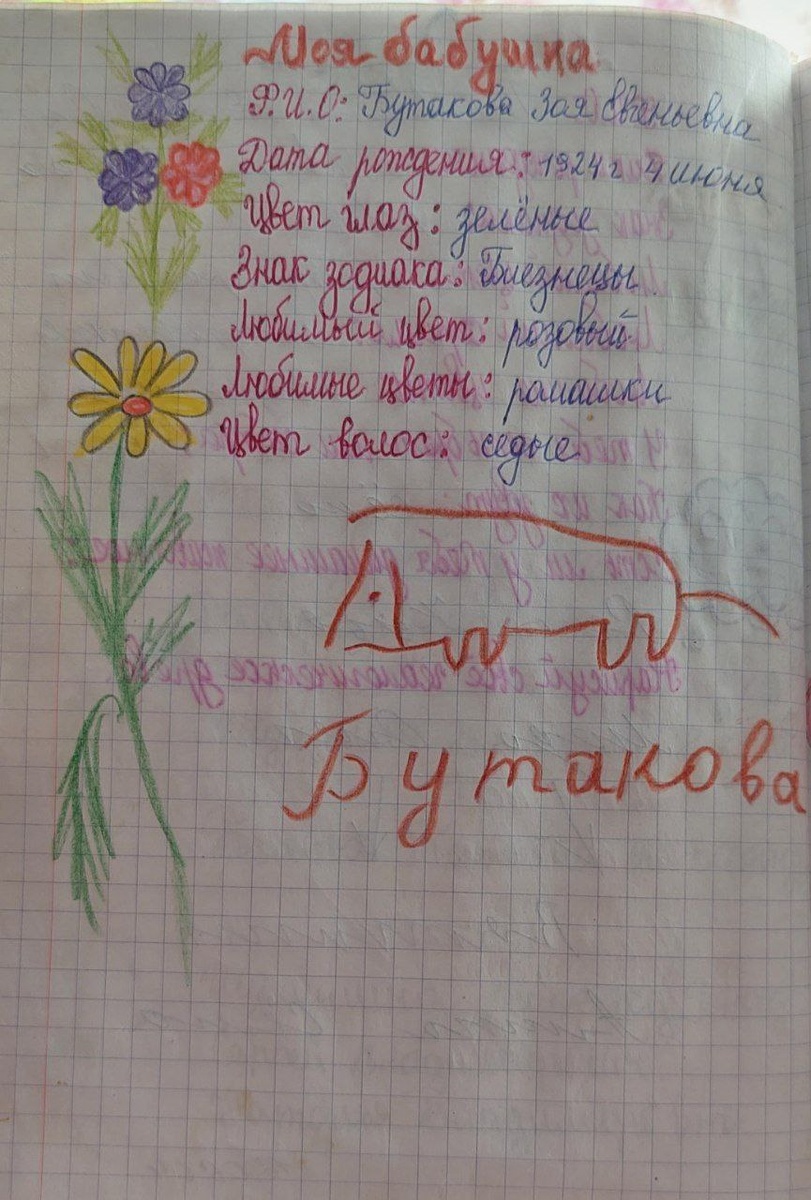 Моя бабушка
Ф.И.О: Бутакова Зоя Евгеньевна
Дата рождения: 1924 г 4 июня
Цвет глаз: зелёные
Знак зодиака: Близнецы
Любимый цвет: розовый
Любимые цветы: ромашки
Цвет волос: седые
Бутакова